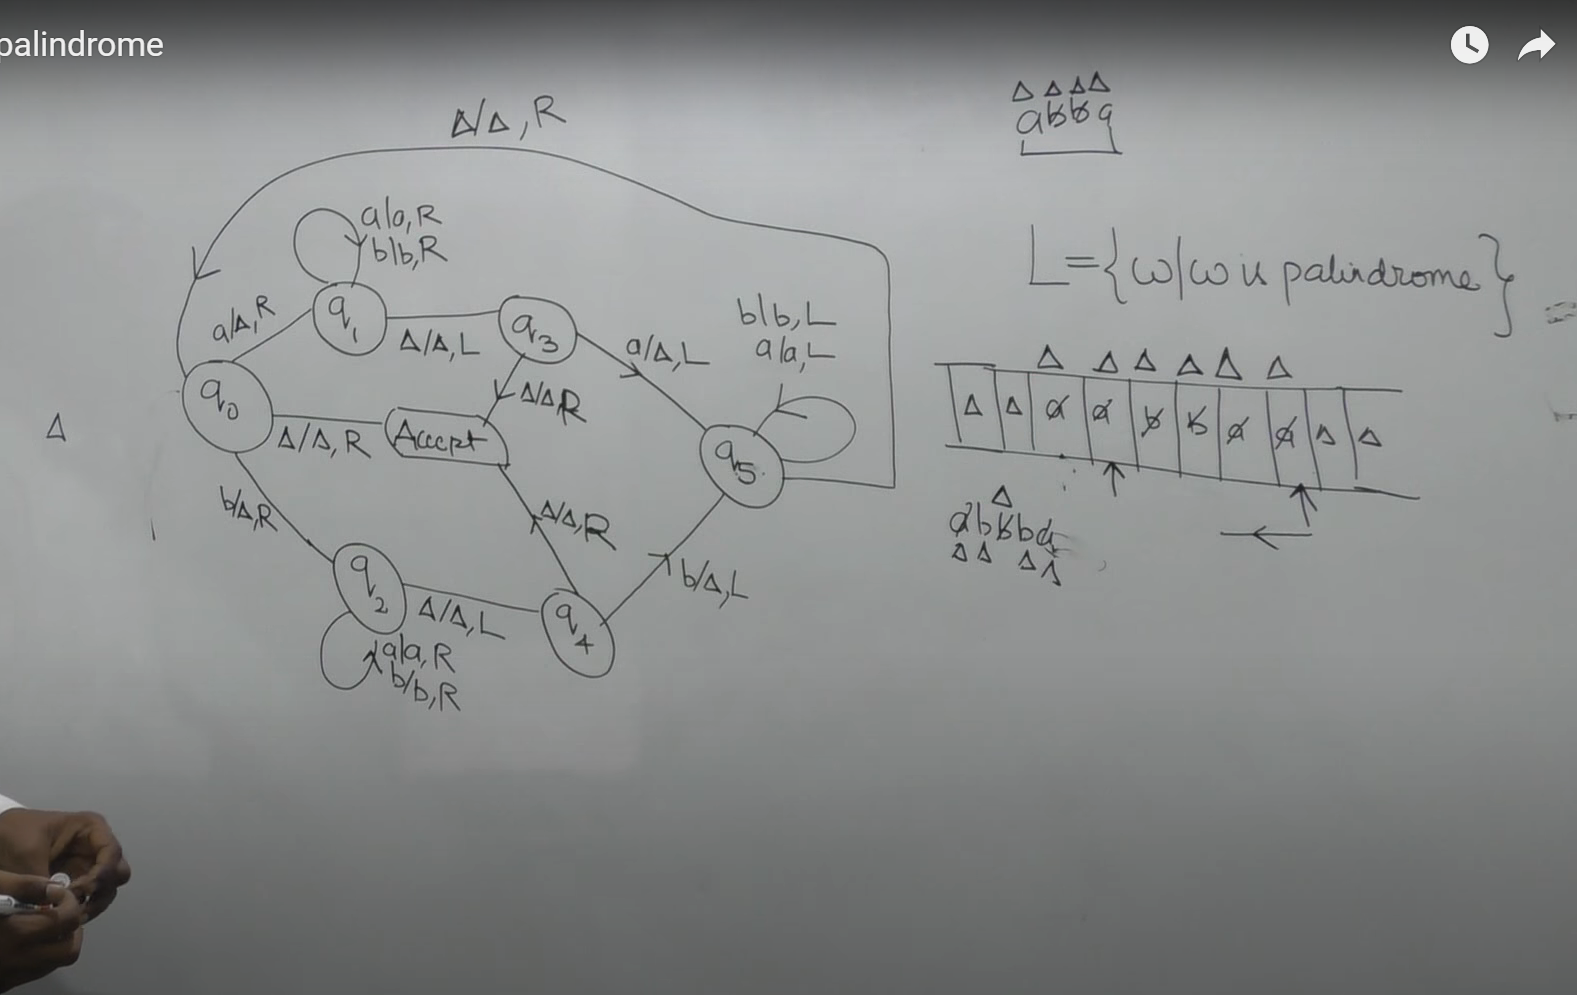 palindrome
Δ/Δ, R
a/a, R
b/b, R
a/Δ, R
q1
Δ/Δ, L
q3
a/Δ, L
b/b, L
a/a, L
q0
Δ/Δ, R
Accept
Δ/Δ, R
q5
Δ
b/Δ, R
q2
Δ/Δ, L
Δ/Δ, R
q4
b/Δ, L
a/a, R
b/b, R
Δ Δ Δ Δ
abba
L = {ω/ω is palindrome}
Δ Δ Δ Δ Δ Δ
Δ Δ a a b b a a Δ Δ
Δ
abbba
Δ Δ Δ Δ